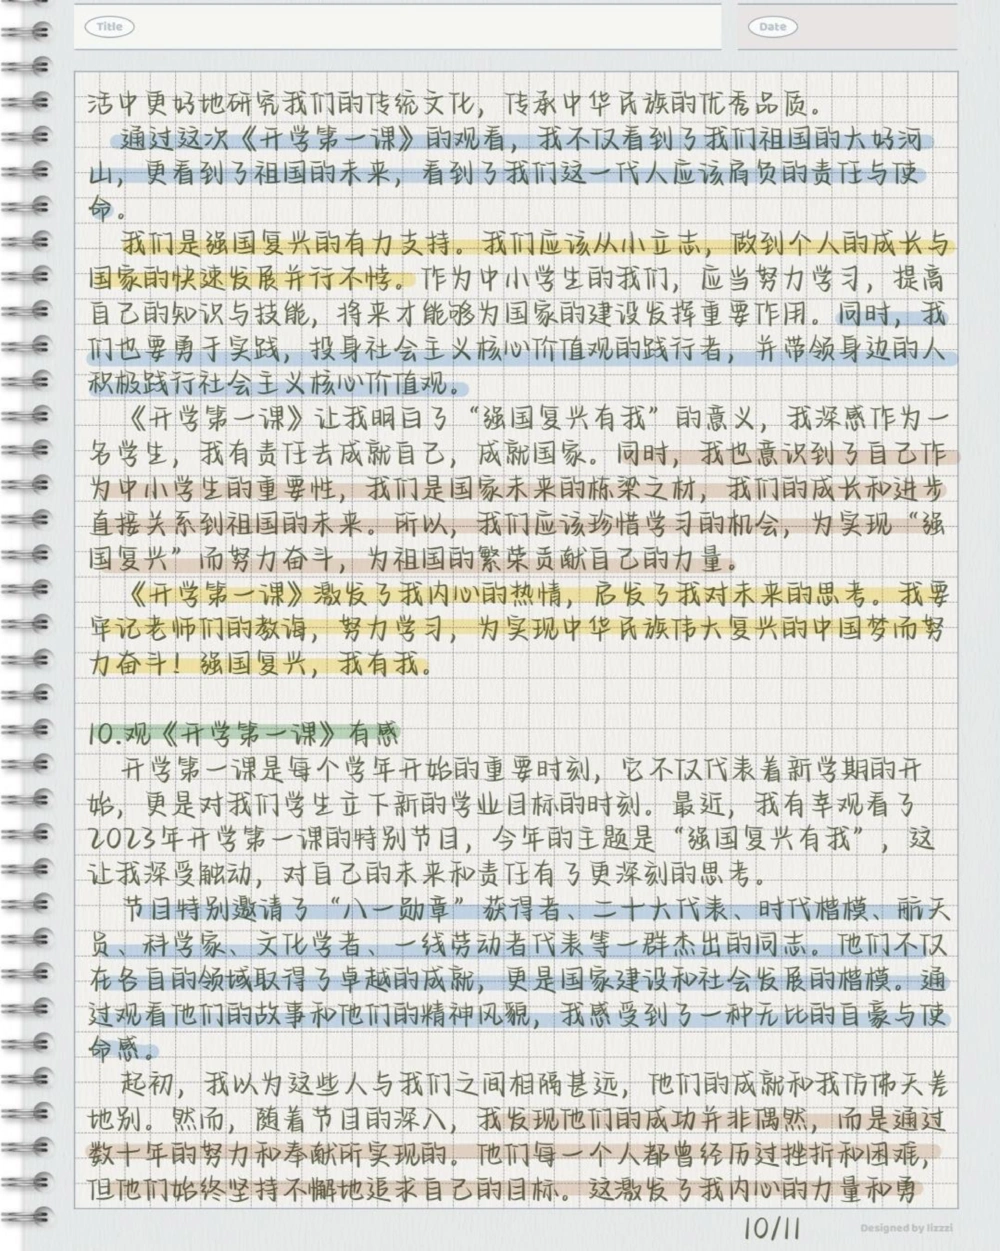 Title
Date
活中更好地研究我们的传统文化，传承中华民族的优秀品质。
通过这次《开学第一课》的观看，我不仅看到了我们祖国的大好河
山，更看到了祖国的未来，看到了我们这一代人应该肩负的责任与使
命。
我们是强国复兴的有力支持。我们应该从小立志，做到个人的成长与
国家的快速发展并行不悖。作为中小学生的我们，应当努力学习，提高
自己的知识与技能，将来才能够为国家的建设发挥重要作用。同时，我
们也要勇于实践，投身社会主义核心价值观的践行者，并带领身边的人
积极践行社会主义核心价值观。
《开学第一课》让我明白了“强国复兴有我”的意义，我深感作为一
名学生，我有责任去成就自己，成就国家。同时，我也意识到了自己作
为中小学生的重要性，我们是国家未来的栋梁之材，我们的成长和进步
直接关系到祖国的未来。所以，我们应该珍惜学习的机会，为实现“强
国复兴”而努力奋斗，为祖国的繁荣贡献自己的力量。
《开学第一课》激发了我内心的热情，启发了我对未来的思考。我要
牢记老师们的教诲，努力学习，为实现中华民族伟大复兴的中国梦而努
力奋斗！强国复兴，我有我。
10.观《开学第一课》有感
开学第一课是每个学年开始的重要时刻，它不仅代表着新学期的开
始，更是对我们学生立下新的学业目标的时刻。最近，我有幸观看了
2023年开学第一课的特别节目，今年的主题是“强国复兴有我”，这
让我深受触动，对自己的未来和责任有了更深刻的思考。
节目特别邀请了“八一勋章”获得者、二十大代表、时代楷模、航天
员、科学家、文化学者、一线劳动者代表等一群杰出的同志。他们不仅
在各自的领域取得了卓越的成就，更是国家建设和社会发展的楷模。通
过观看他们的故事和他们的精神风貌，我感受到了一种无比的自豪与使
命感。
起初，我以为这些人与我们之间相隔甚远，他们的成就和我仿佛天差
地别。然而，随着节目的深入，我发现他们的成功并非偶然，而是通过
数十年的努力和奉献所实现的。他们每一个人都曾经历过挫折和困难，
但他们始终坚持不懈地追求自己的目标。这激发了我内心的力量和勇
10/11
Designed by lizzzi